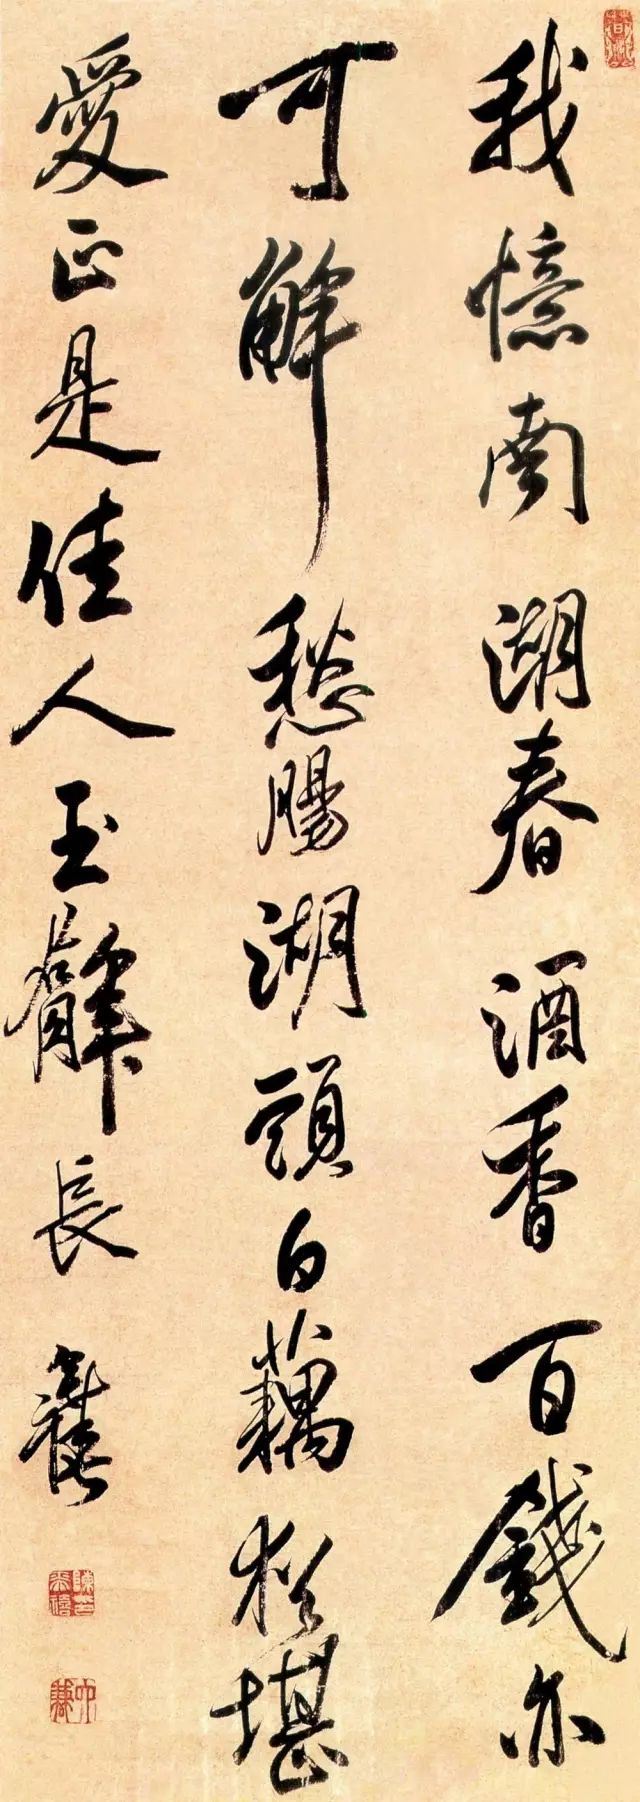 我憶南湖春酒香百錢亦
可解愁腸湖頭白藕猶堪
愛正是佳人玉臂長 奕禧